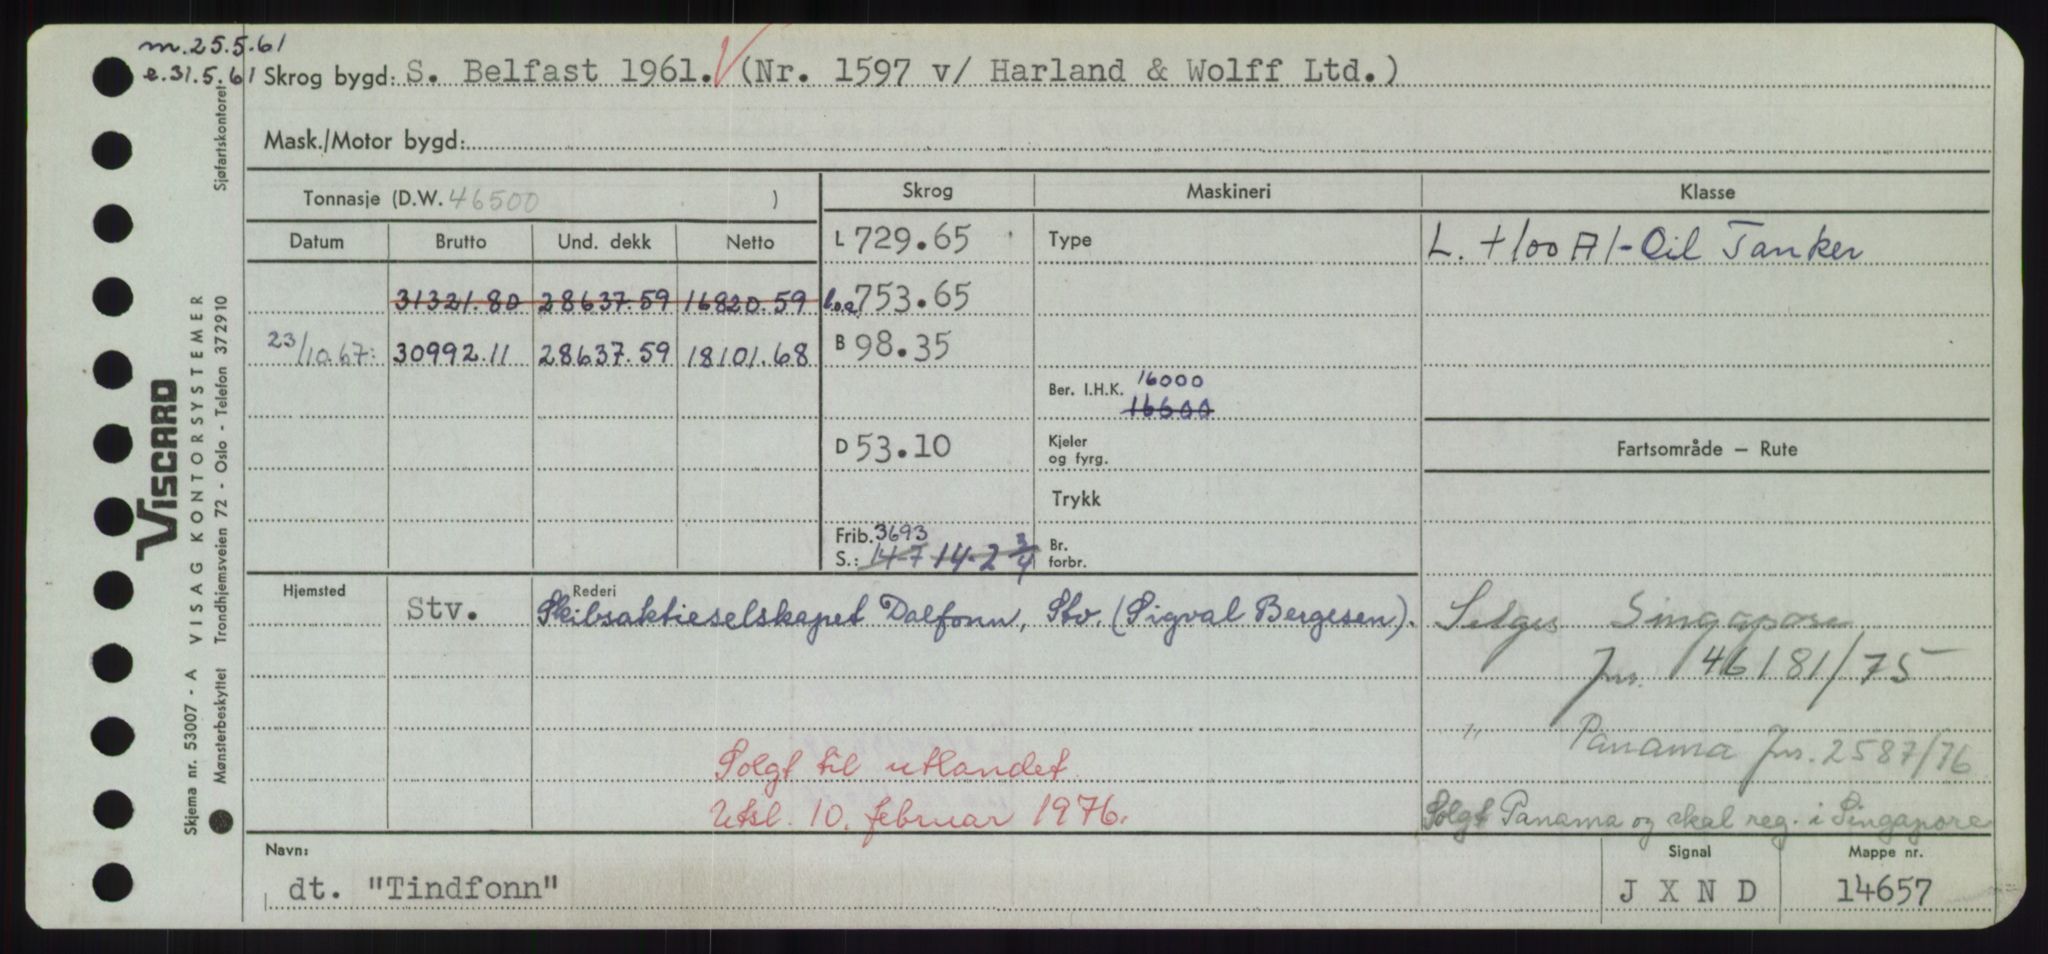 m.25.5.61
e.31.5.61 Skrog bygd: S. Belfast 1961. (Nr. 1597 v/ Harland & Wolff Ltd.)
Mask./Motor bygd:
Tonnasje (D.W. 46500 ) Skrog Maskineri Klasse
Datum Brutto Und. dekk Netto L 729.65 Type L. +100 A 1 - Oil Tanker
31321.80 28637.59 16820.59 l.o.a. 753.65
23/10.67: 30992.11 28637.59 18101.68 B 98.35
Ber. I.H.K. 16000
16600
D 53.10 Kjeler og fyrg. Fartsområde — Rute
Trykk
Frib. 3693
S.: 14-7 14-2 3/4 Br. forbr.
Hjemsted Rederi
Stv. Skibsaktieselskapet Dalfonn, Stv. (Sigval Bergesen). Selges Singapore
Jnr. 46181/75
" Panama Jnr. 2587/76
Solgt til utlandet
Utsl. 10. februar 1976.
Solgt Panama og skal reg. i Singapore
Navn: Signal Mappe nr.
dt. "Tindfonn" J X N D 14657
VISCARD
Skjema nr. 53007 - A VISAG KONTORSYSTEMER
Mønsterbeskyttet Trondhjemsveien 72 - Oslo - Telefon 372910 Sjøfartskontoret